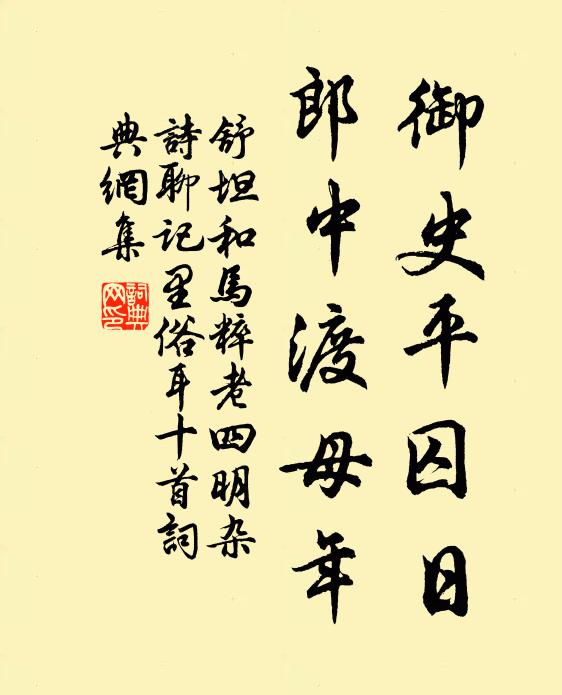 御史平囚日
郎中渡母年
舒坦和馬粹老四明杂
詩聊记里俗耳十首詞
典網集
詞典网印